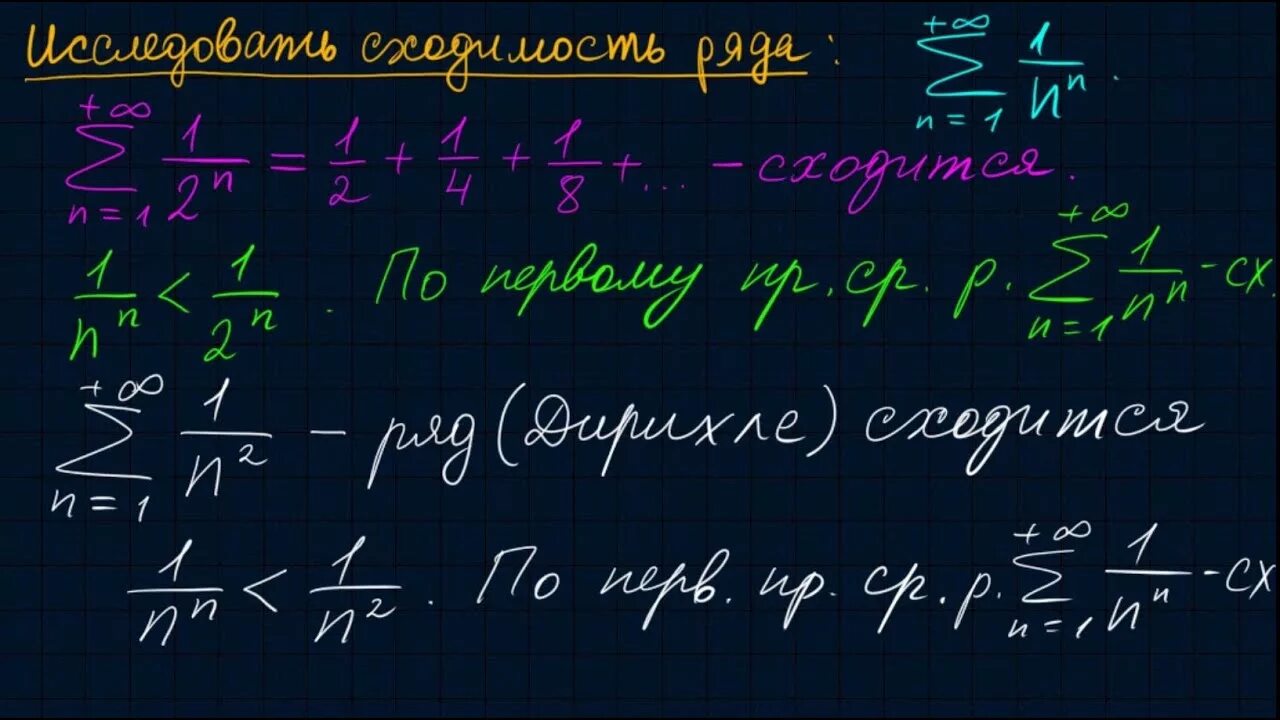 Исследовать сходимость ряда: \sum_{n=1}^{+\infty} \frac{1}{n^n}.
\sum_{n=1}^{+\infty} \frac{1}{2^n} = \frac{1}{2} + \frac{1}{4} + \frac{1}{8} + ... - сходится.
\frac{1}{n^n} < \frac{1}{2^n}. По первому пр. ср. р. \sum_{n=1}^{+\infty} \frac{1}{n^n} - сх.
\sum_{n=1}^{+\infty} \frac{1}{n^2} - ряд (Дирихле) сходится
\frac{1}{n^n} < \frac{1}{n^2}. По перв. пр. ср. р. \sum_{n=1}^{+\infty} \frac{1}{n^n} - сх